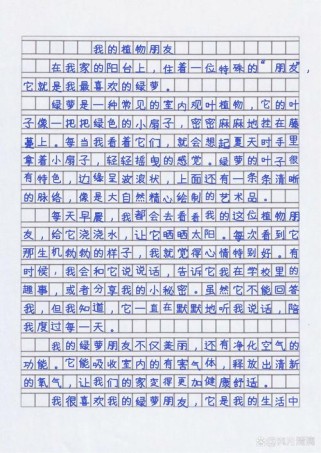 我的植物朋友
在我家的阳台上，住着一位特殊的“朋友”，
它就是我最喜欢的绿萝。
绿萝是一种常见的室内观叶植物，它的叶
子像一把把绿色的小扇子，密密麻麻地挂在藤
蔓上。每当我看着它们，就会想起夏天时手里
拿着小扇子，轻轻摇曳的感觉。绿萝的叶子很
有特色，边缘呈波浪状，上面还有一条条清晰
的脉络，像是大自然精心绘制的艺术品。
每天早晨，我都会去看看我的这位植物朋
友，给它浇浇水，让它晒晒太阳。每次看到它
那生机勃勃的样子，我就觉得心情特别好。有
时候，我会和它说说话，告诉它我在学校里的
趣事，或者分享我的小秘密。虽然它不能回答
我，但我知道，它一直在默默地听我说话，陪
我度过每一天。
我的绿萝朋友不仅美丽，还有净化空气的
功能。它能吸收室内的有害气体，释放出清新
的氧气，让我们的家变得更加健康舒适。
我很喜欢我的绿萝朋友，它是我的生活中